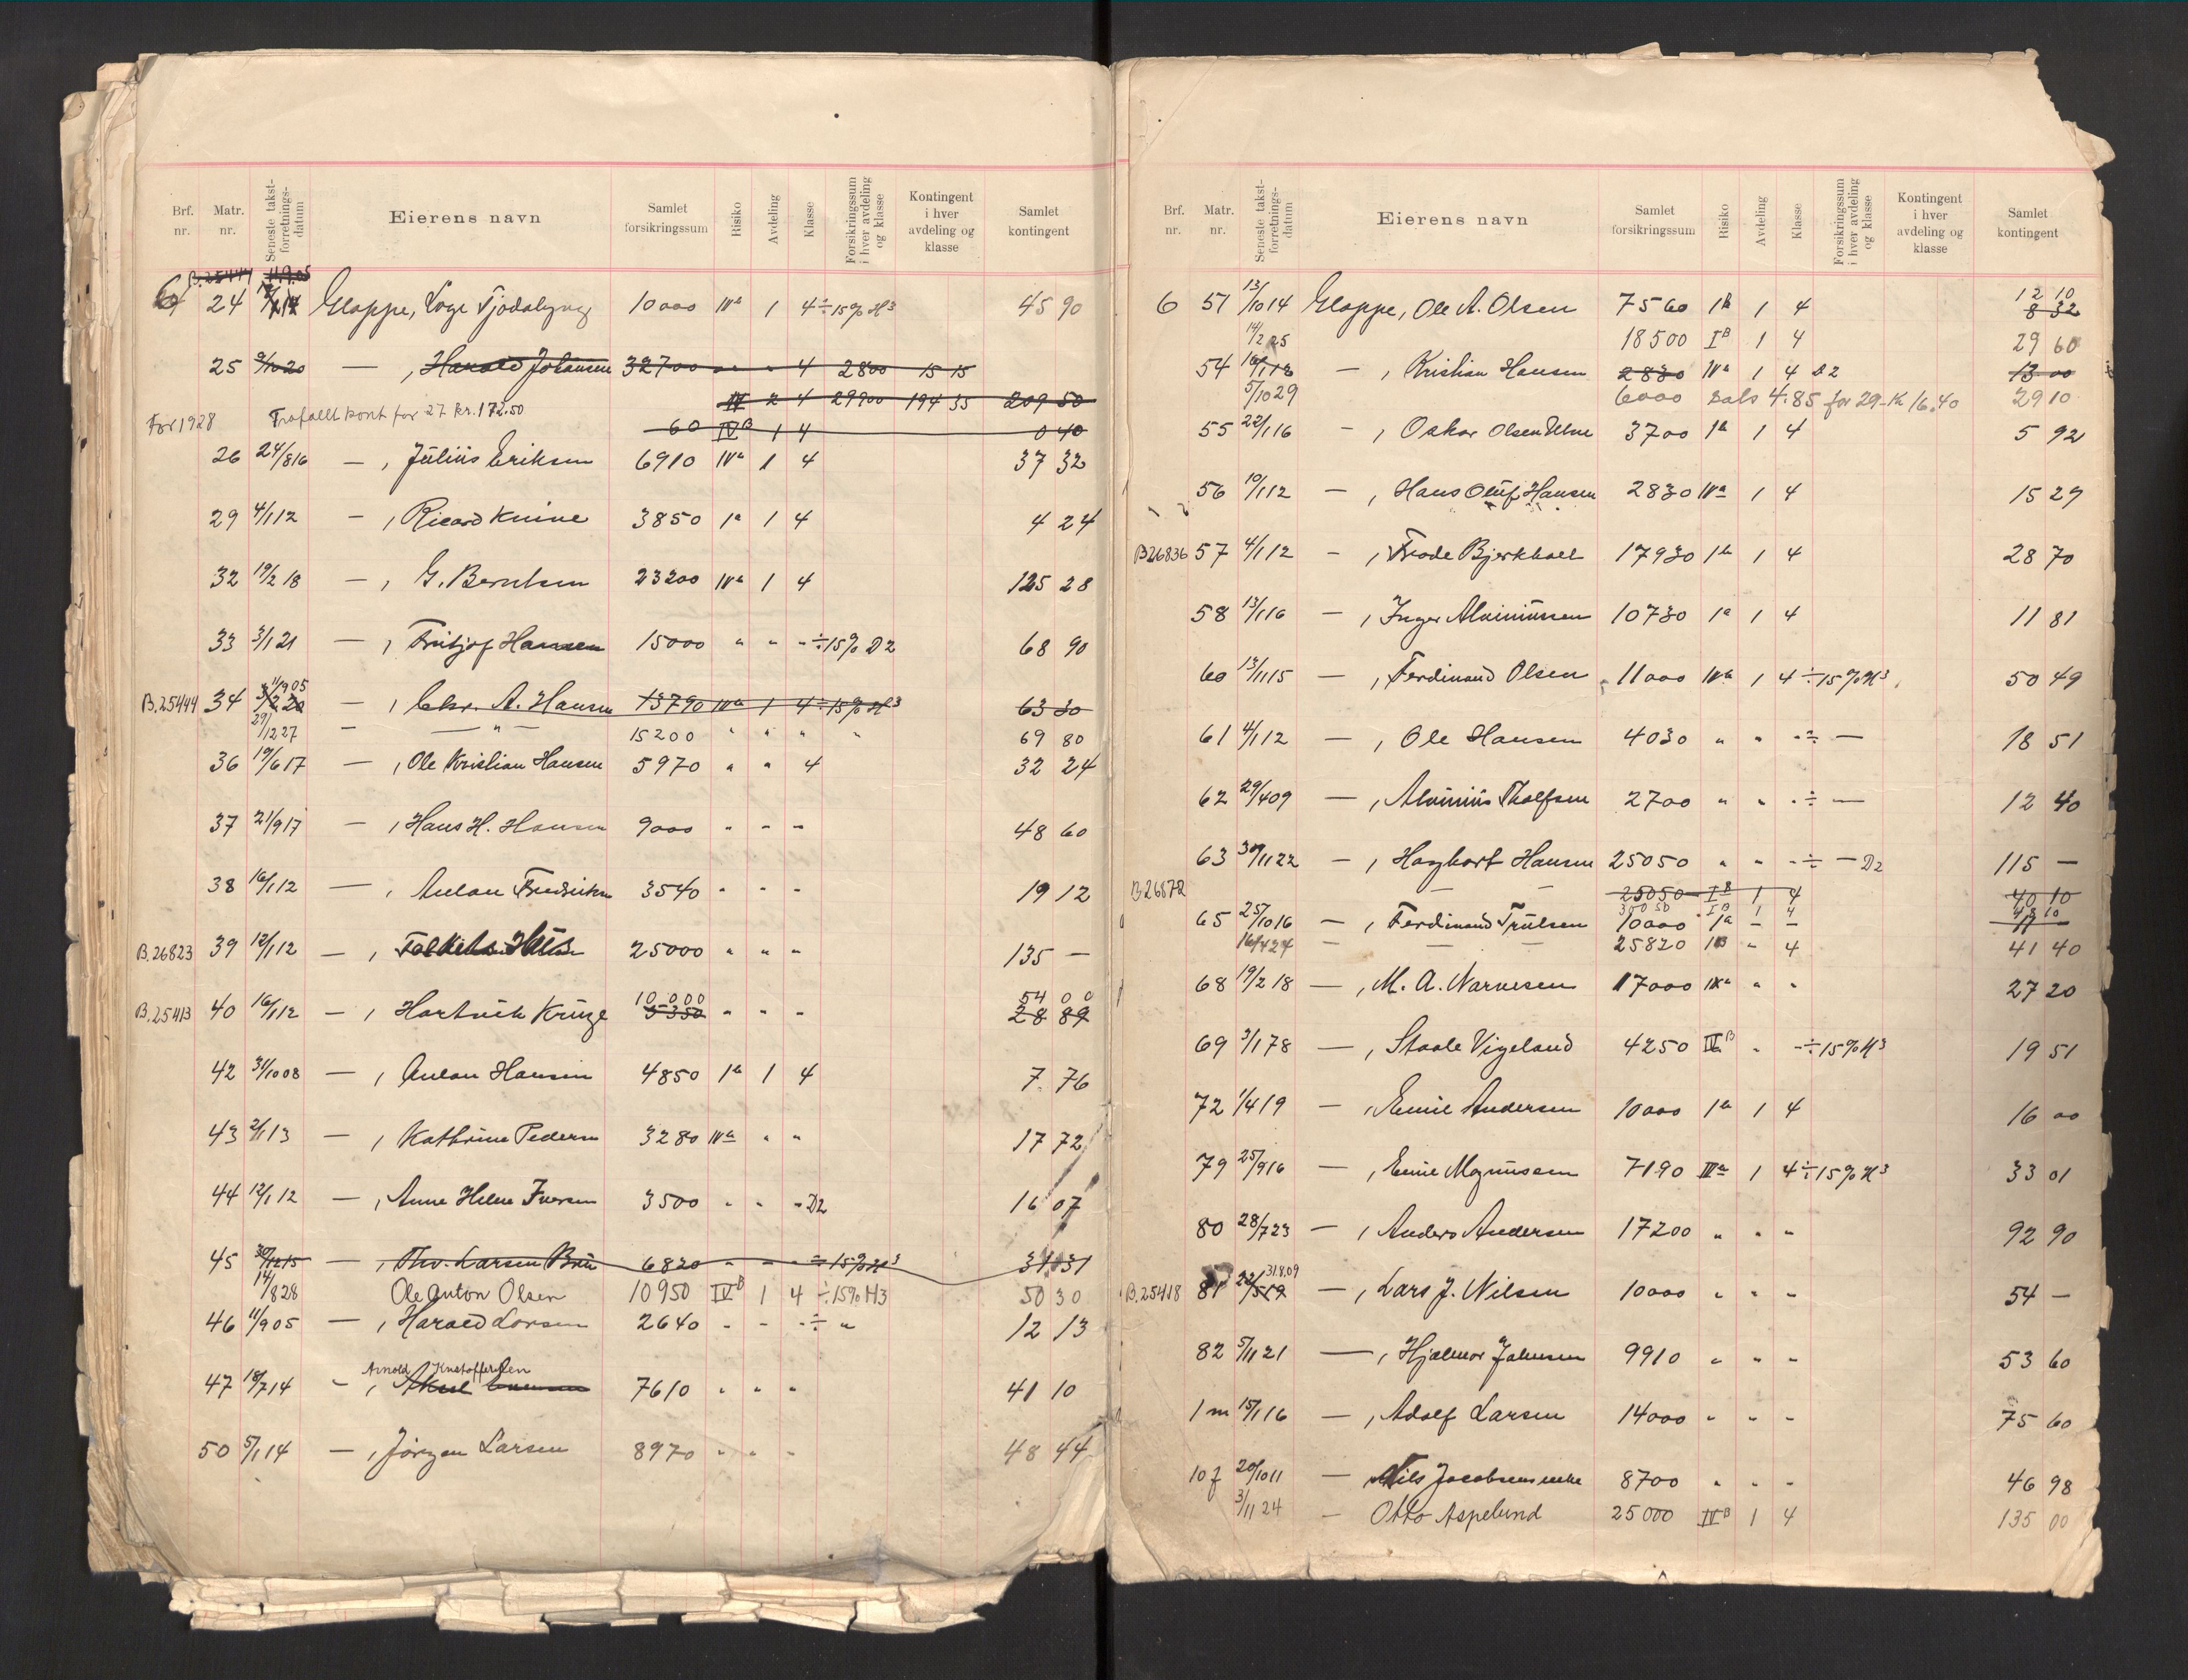 Brf. nr. Matr. nr. Seneste takst-forretnings-datum Eierens navn Samlet forsikringssum Risiko Avdeling Klasse Forsikringssum i hver avdeling og klasse Kontingent i hver avdeling og klasse Samlet kontingent
B.25444 11.9.05
6 24 Gloppe, Loge Fjodalyng 10000 IVa 1 4 ÷15% H3 45 90
25 9/1020 — , Harald Johansen 32700 " " 4 2800 15 15
IV 2 4 29900 194 35 209 50
Før 1928 Frafallt kont for 27 kr. 172.50 60 IVB 1 4 0 40
26 24/816 — , Julius Eriksen 6910 IVa 1 4 37 32
29 4/112 — , Ricard Knine 3850 1a 1 4 4 24
32 19/218 — , G. Berntsen 23200 IVa 1 4 125 28
33 3/121 — , Fritjof Hansen 15000 " " - ÷15% D2 68 90
11/905
B.25444 34 3/220 — , Chr. A. Hansen 13790 IVa 1 4 ÷15% H3 63 30
29/1227 — " — 15200 " " " " 69 80
36 19/617 — , Ole Kristian Hansen 5970 " " 4 32 24
37 21/917 — , Hans H. Hansen 9000 " - - 48 60
38 16/112 — , Anton Fredriksen 3540 " - - 19 12
B.26823 39 12/112 — , Folkets Hus 25000 " " - 135 —
10000 54 00
B.25413 40 16/112 — , Hartvik Kruge 5350 " - - 28 89
42 31/1008 — , Anton Hansen 4850 1b 1 4 7 76
43 2/113 — , Kathrine Pedersen 3280 IVa " " 17 72
44 12/112 — , Anne Helene Iversen 3500 " - - D2 16 07
45 30/1215 — , Thv. Larsen Bru 6820 " - - ÷15% H3 31 31
14/828 Ole Anton Olsen 10950 IVB 1 4 ÷15% H3 50 30
46 11/905 — , Harald Larsen 2640 - - - ÷ " 12 13
Arnold Kristoffersen
47 18/714 — , Aksel 7610 " " - 41 10
50 5/114 — , Jörgen Larsen 8970 " " - 48 44
Brf. nr. Matr. nr. Seneste takst-forretnings-datum Eierens navn Samlet forsikringssum Risiko Avdeling Klasse Forsikringssum i hver avdeling og klasse Kontingent i hver avdeling og klasse Samlet kontingent
12 10
6 51 13/1014 Gloppe, Ole A. Olsen 7560 1b 1 4 8 32
14/225 18500 IB 1 4 29 60
54 16/112 — , Kristian Hansen 2830 IVa 1 4 D2 13 00
5/1029 6000 4.85 for 29 - K 16.40 29 10
55 22/116 — , Oskar Olsen 3700 1b 1 4 5 92
56 10/112 — , Hans Oluf Hansen 2830 IVa 1 4 15 29
B26836 57 4/112 — , Frode Bjerkholt 17930 1b 1 4 28 70
58 13/116 — , Inger Alviniussen 10730 1a 1 4 11 81
60 13/1115 — , Ferdinand Olsen 11000 IVa 1 4 ÷15% H3 50 49
61 4/112 — , Ole Hansen 4030 " " - ÷ — 18 51
62 29/409 — , Alvinius Tholfsen 2700 " " - ÷ — 12 40
63 30/1122 — , Hagbart Hansen 25050 " " - ÷ — D2 115 —
B26572 — — 25050 IB 1 4 40 10
30050 IB 1 4 48 10
65 25/1016 — , Ferdinand Trulsen 10000 1a — — 11 —
16/424 — — — 25820 1B " 4 41 40
68 19/218 — , M. A. Narvesen 17000 IXa " " 27 20
69 3/178 — , Staale Vigeland 4250 IVB " - ÷15% H3 19 51
72 1/419 — , Emil Andersen 10000 1b 1 4 16 00
79 25/916 — , Emil Magnussen 7190 IVa 1 4 ÷15% H3 33 01
80 28/723 — , Anders Andersen 17200 " " - 92 90
31.8.09
B.25418 81 22/519 — , Lars J. Nilsen 10000 " " - 54 —
82 5/1121 — , Hjalmar Johnsen 9910 " " - 53 60
1m 15/116 — , Adolf Larsen 14000 " - - 75 60
10f 20/1011 — Nils Jacobsens enke 8700 " " - 46 98
3/1124 — Otto Aspelund 25000 IVB 1 4 135 00